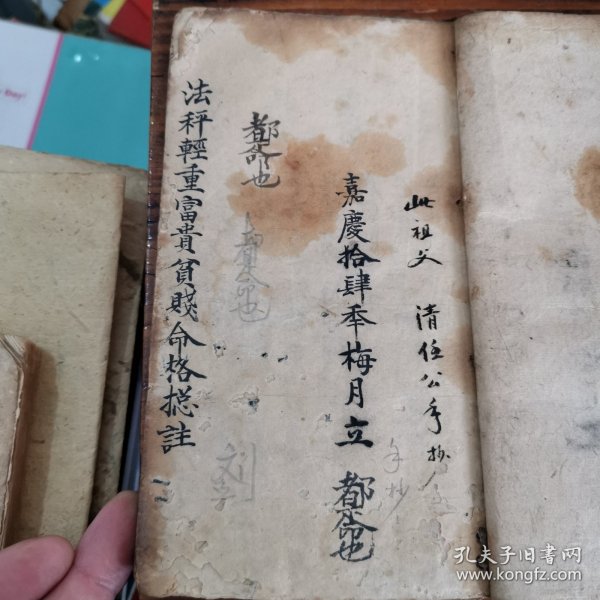 此祖父 清任公手抄
嘉慶拾肆年梅月立 都命也
手抄
都命也
都命也
法秤輕重富貴貧賤命格捴註
孔夫子旧书网
www.kongfz.com